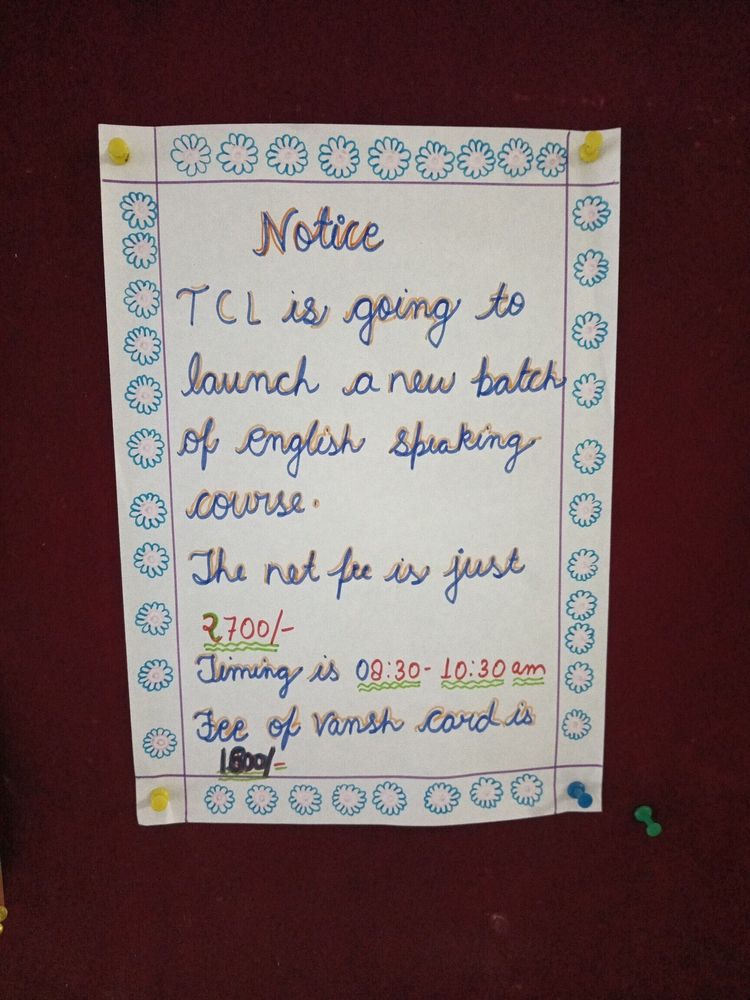 Notice
TCL is going to
launch a new batch
of english speaking
course.
The net fee is just
2700/-
Timing is 08:30- 10:30 am
Fee of Vansh card is